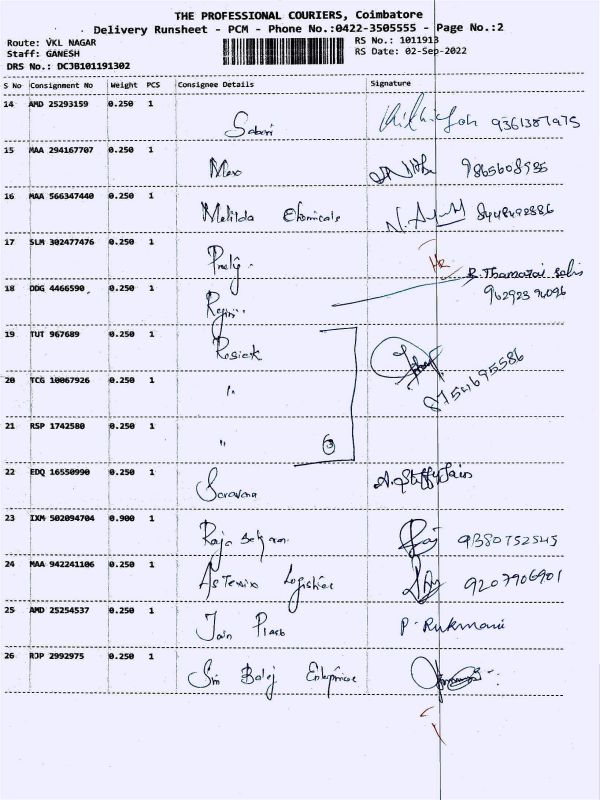 THE PROFESSIONAL COURIERS, Coimbatore
Delivery Runsheet - PCM - Phone No.:0422-3505555 - Page No.:2
Route: VKL NAGAR RS No.: 1011913
Staff: GANESH RS Date: 02-Sep-2022
DRS No.: DCJB101191302
S No Consignment No Weight PCS Consignee Details Signature
14 AMD 25293159 0.250 1
Sabari 9361387975
15 MAA 294167707 0.250 1
9865608985
16 MAA 566347440 0.250 1
Chemicals 8448492886
17 SLM 302477476 0.250 1
R. Thamarai
18 DDG 4466590 0.250 1
19 TUT 967689 0.250 1
9754695586
20 TCG 10067926 0.250 1
"
21 RSP 1742580 0.250 1
"
22 EDQ 16550990 0.250 1
Saravana
23 IXM 502094704 0.900 1
Raja 9380752545
24 MAA 942241106 0.250 1
Logistics 9207906901
25 AMD 25254537 0.250 1
Jain P. Rukmani
26 RJP 2992975 0.250 1
Sri Balaj Enterprise